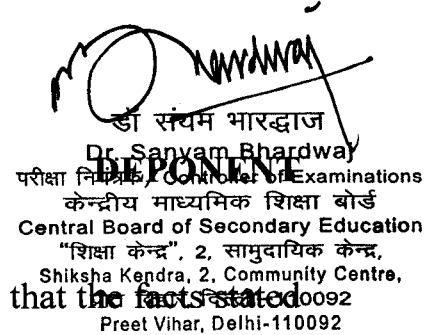 डॉ संयम भारद्वाज
Dr. Sanyam Bhardwaj
DEPONENT
परीक्षा नियंत्रक/ Controller of Examinations
केन्द्रीय माध्यमिक शिक्षा बोर्ड
Central Board of Secondary Education
"शिक्षा केन्द्र", 2, सामुदायिक केन्द्र,
Shiksha Kendra, 2, Community Centre,
that the facts stated
110092
Preet Vihar, Delhi-110092